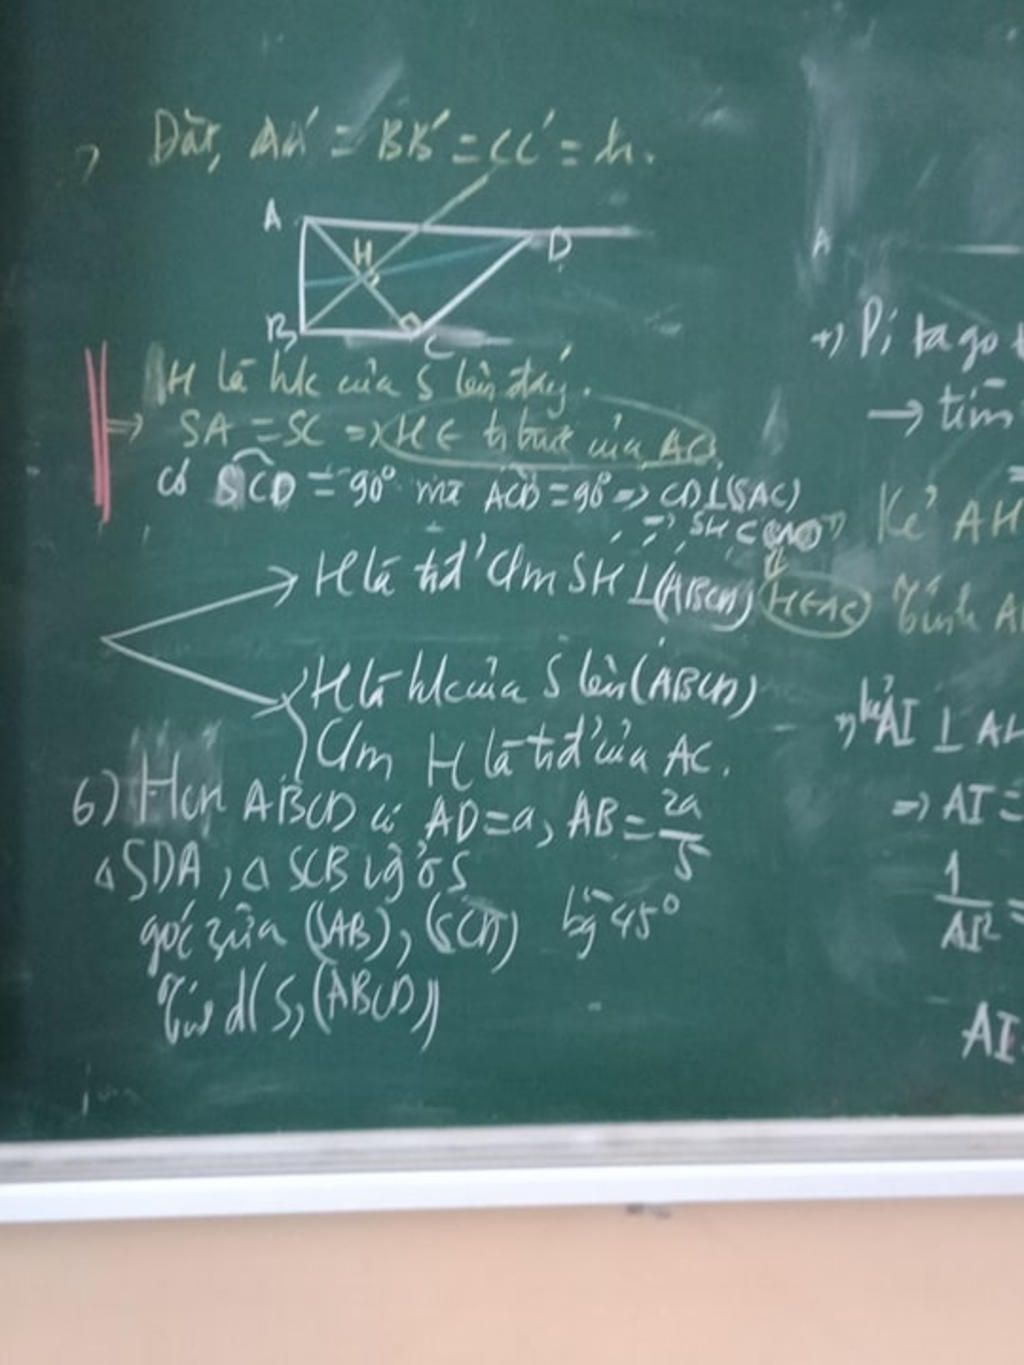 Đặt, AA' = BB' = CC' = h.
A
H
D
B
C
A
H là h/c của S lên đáy.
=> SA = SC => H ∈ tr trực của AC
có SCD = 90° mà ACD = 90° => CD ⊥ (SAC)
=> SH ⊂ (SAC)
H là tđ' Cm SH ⊥ (ABCD)
H ∈ AC
H là h/c của S lên (ABCD)
Cm H là tđ' của AC.
6) Hcn ABCD có AD = a, AB = 2a/5
△ SDA, △ SCB vg ở S
góc giữa (SAB), (SCD) bg 45°
Tính d(S, (ABCD))
+) Pi ta go
→ tìm
Kẻ AH
Tính
kẻ AI ⊥
=> AI =
1/AI² =
AI